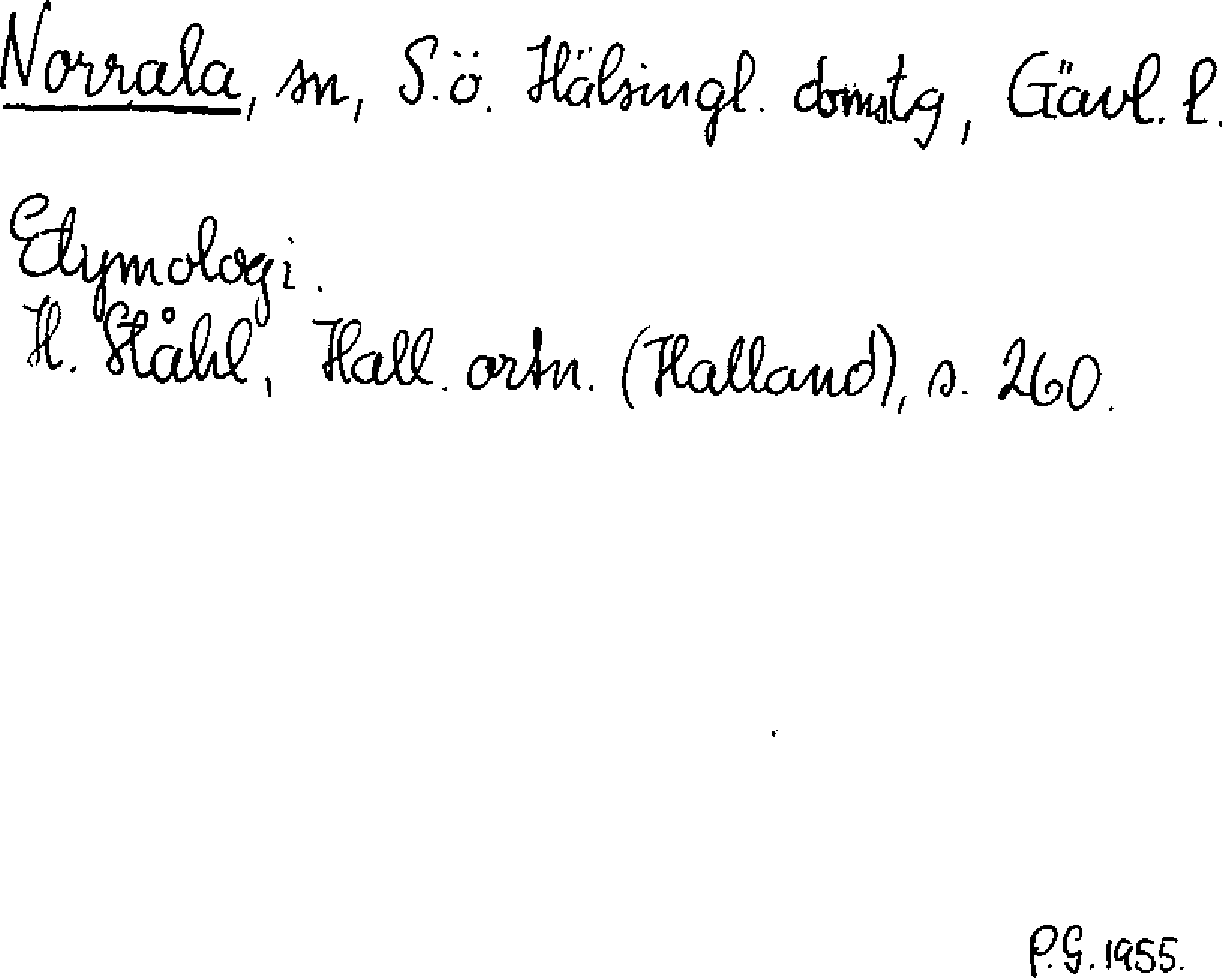 Norrala, sn, S.ö. Hälsingl. domstg, Gävl. l.
Etymologi.
H. Ståhl, Hall. ortn. (Halland), s. 260.
P.G. 1955.